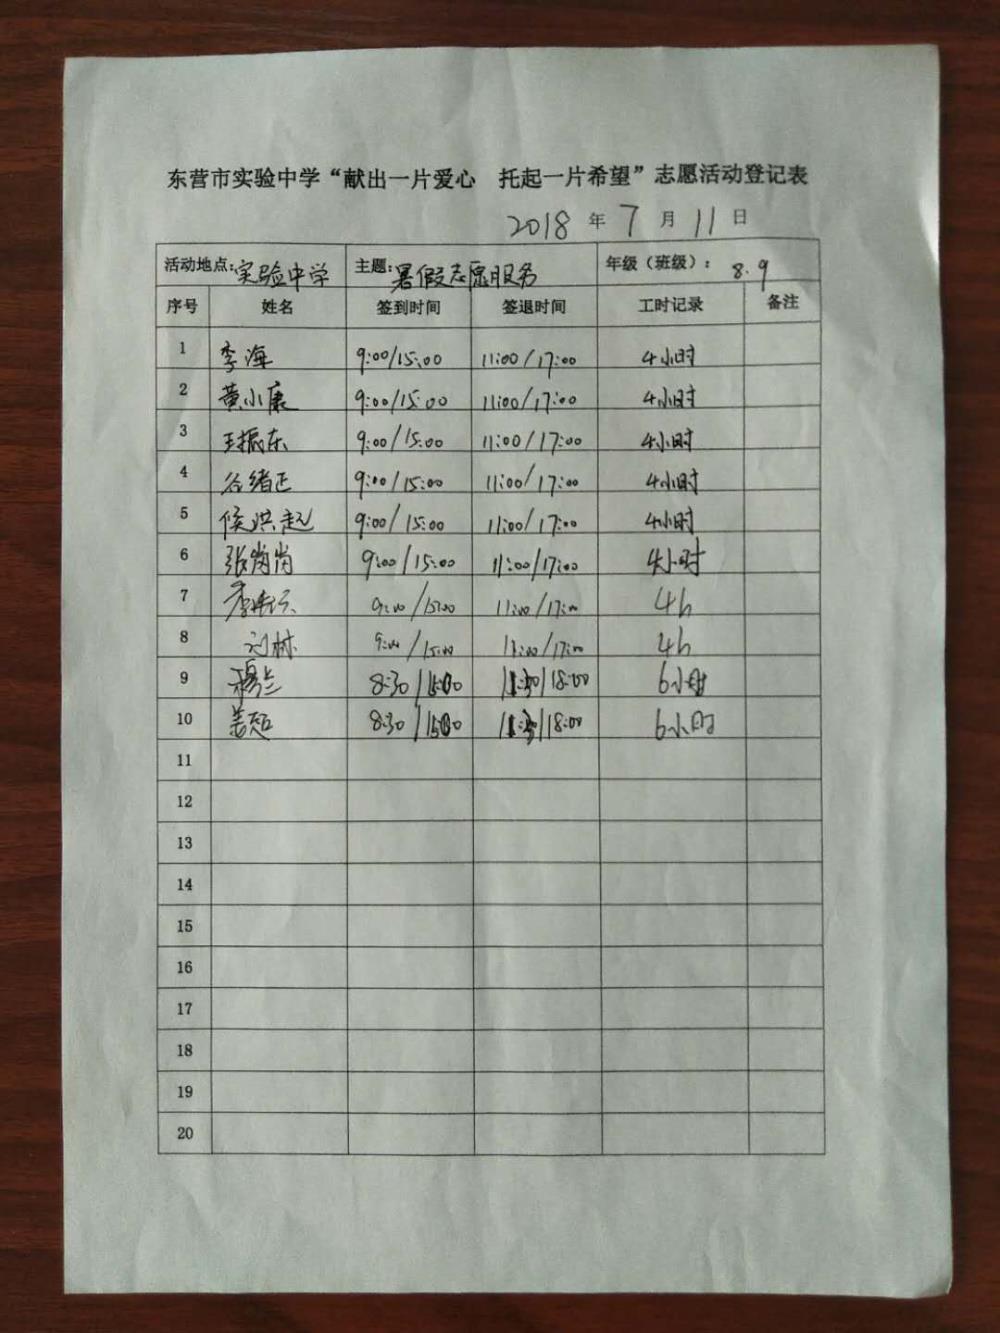 东营市实验中学“献出一片爱心 托起一片希望”志愿活动登记表
2018 年 7 月 11 日
活动地点:实验中学 主题:暑假志愿服务 年级（班级）: 8.9
序号 姓名 签到时间 签退时间 工时记录 备注
1 李海 9:00/15:00 11:00/17:00 4小时
2 黄小康 9:00/15:00 11:00/17:00 4小时
3 王振东 9:00/15:00 11:00/17:00 4小时
4 谷绪正 9:00/15:00 11:00/17:00 4小时
5 侯洪起 9:00/15:00 11:00/17:00 4小时
6 张岗岗 9:00/15:00 11:00/17:00 4小时
7 9:00/15:00 11:00/17:00 4h
8 9:00/15:00 11:00/17:00 4h
9 8:30/15:00 11:30/18:00 6小时
10 8:30/15:00 18:00 6小时
11
12
13
14
15
16
17
18
19
20